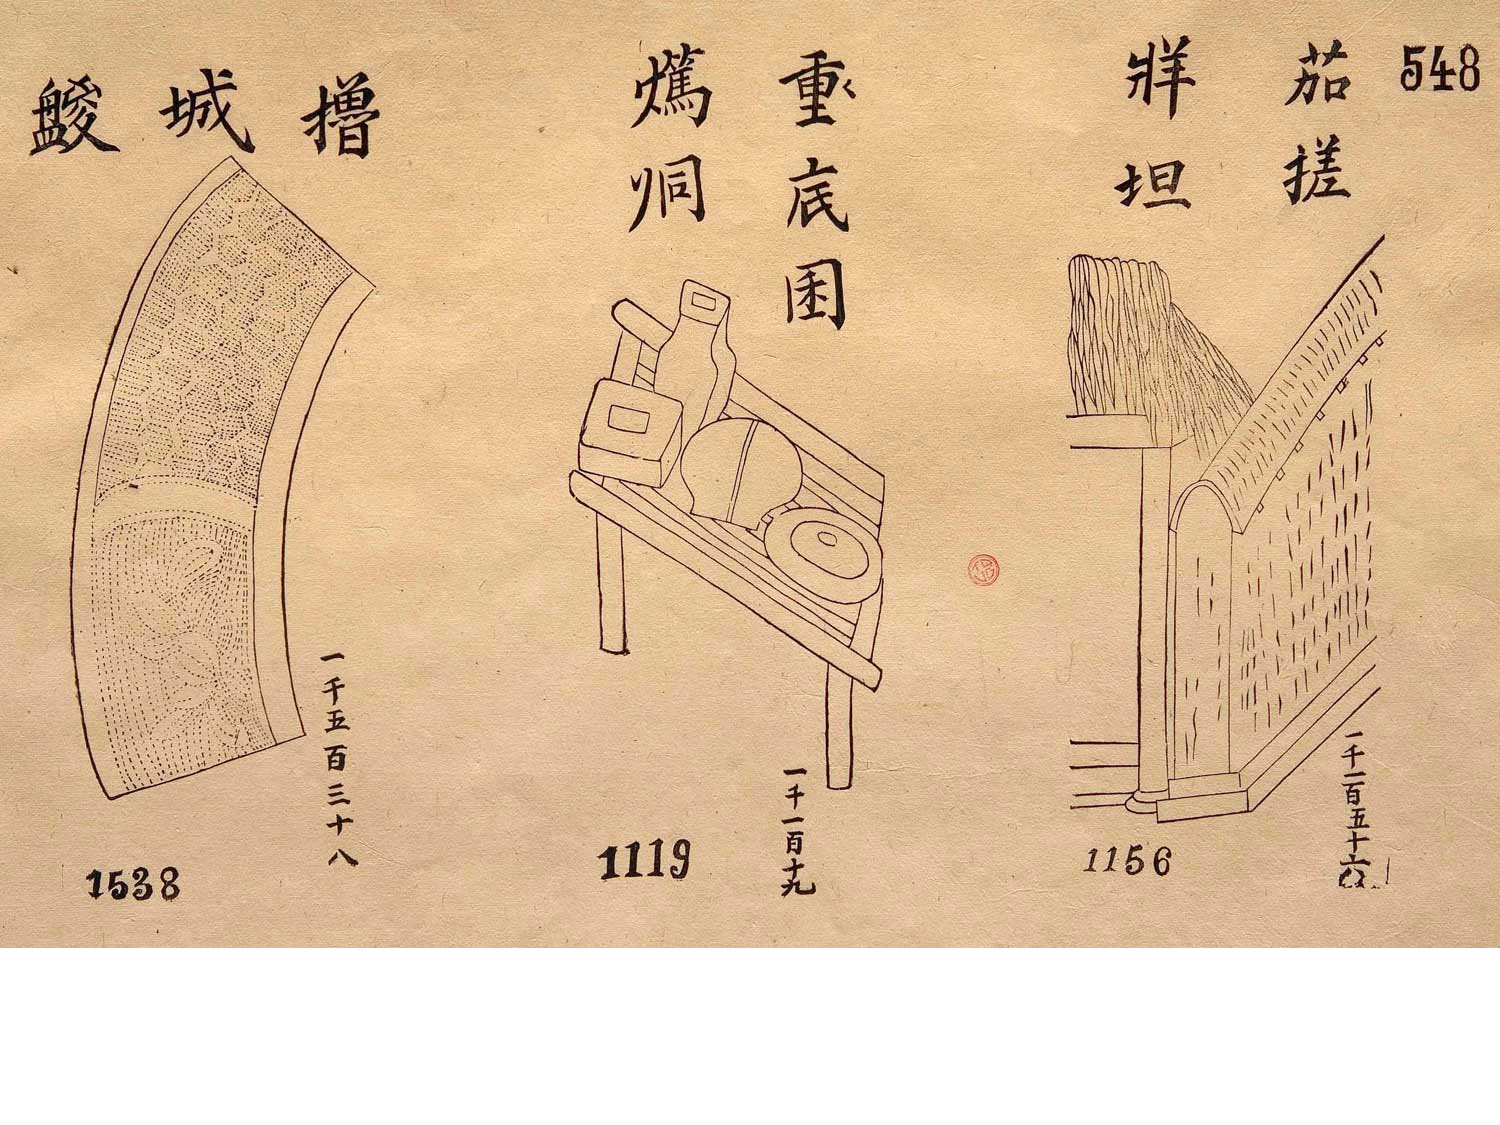 548
茄搓
牂坦
一千一百五十六
1156
重底困
烔
一千一百十九
1119
城
一千五百三十八
1538